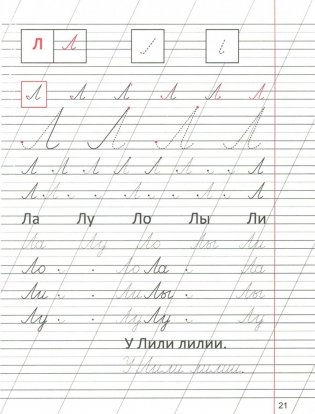 Л Л
Л Л Л Л Л Л
Л Л Л Л
Л Л Л Л Л Л Л Л
Л Л Л
Ла Лу Ло Лы Ли
Ла Лу Ло Лы Ли
Ло Ло Ла Ла
Ли Ли Лы Лы
Лу Лу Лу Лу
У Лили лилии.
У Лили лилии.
21